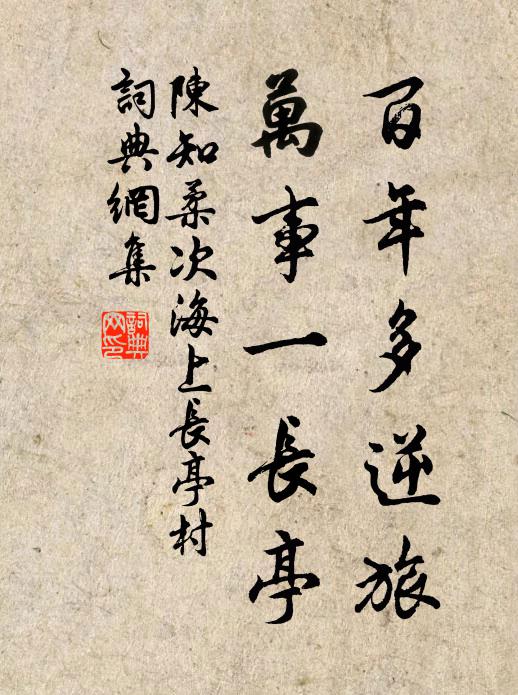 百年多逆旅
萬事一長亭
陳知柔次海上長亭村
詞典網集
詞典
网印